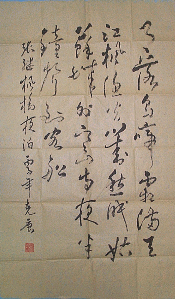 月落烏啼霜滿天
江楓漁火對愁眠姑
蘇城外寒山寺夜半
鐘聲到客船
張繼楓橋夜泊